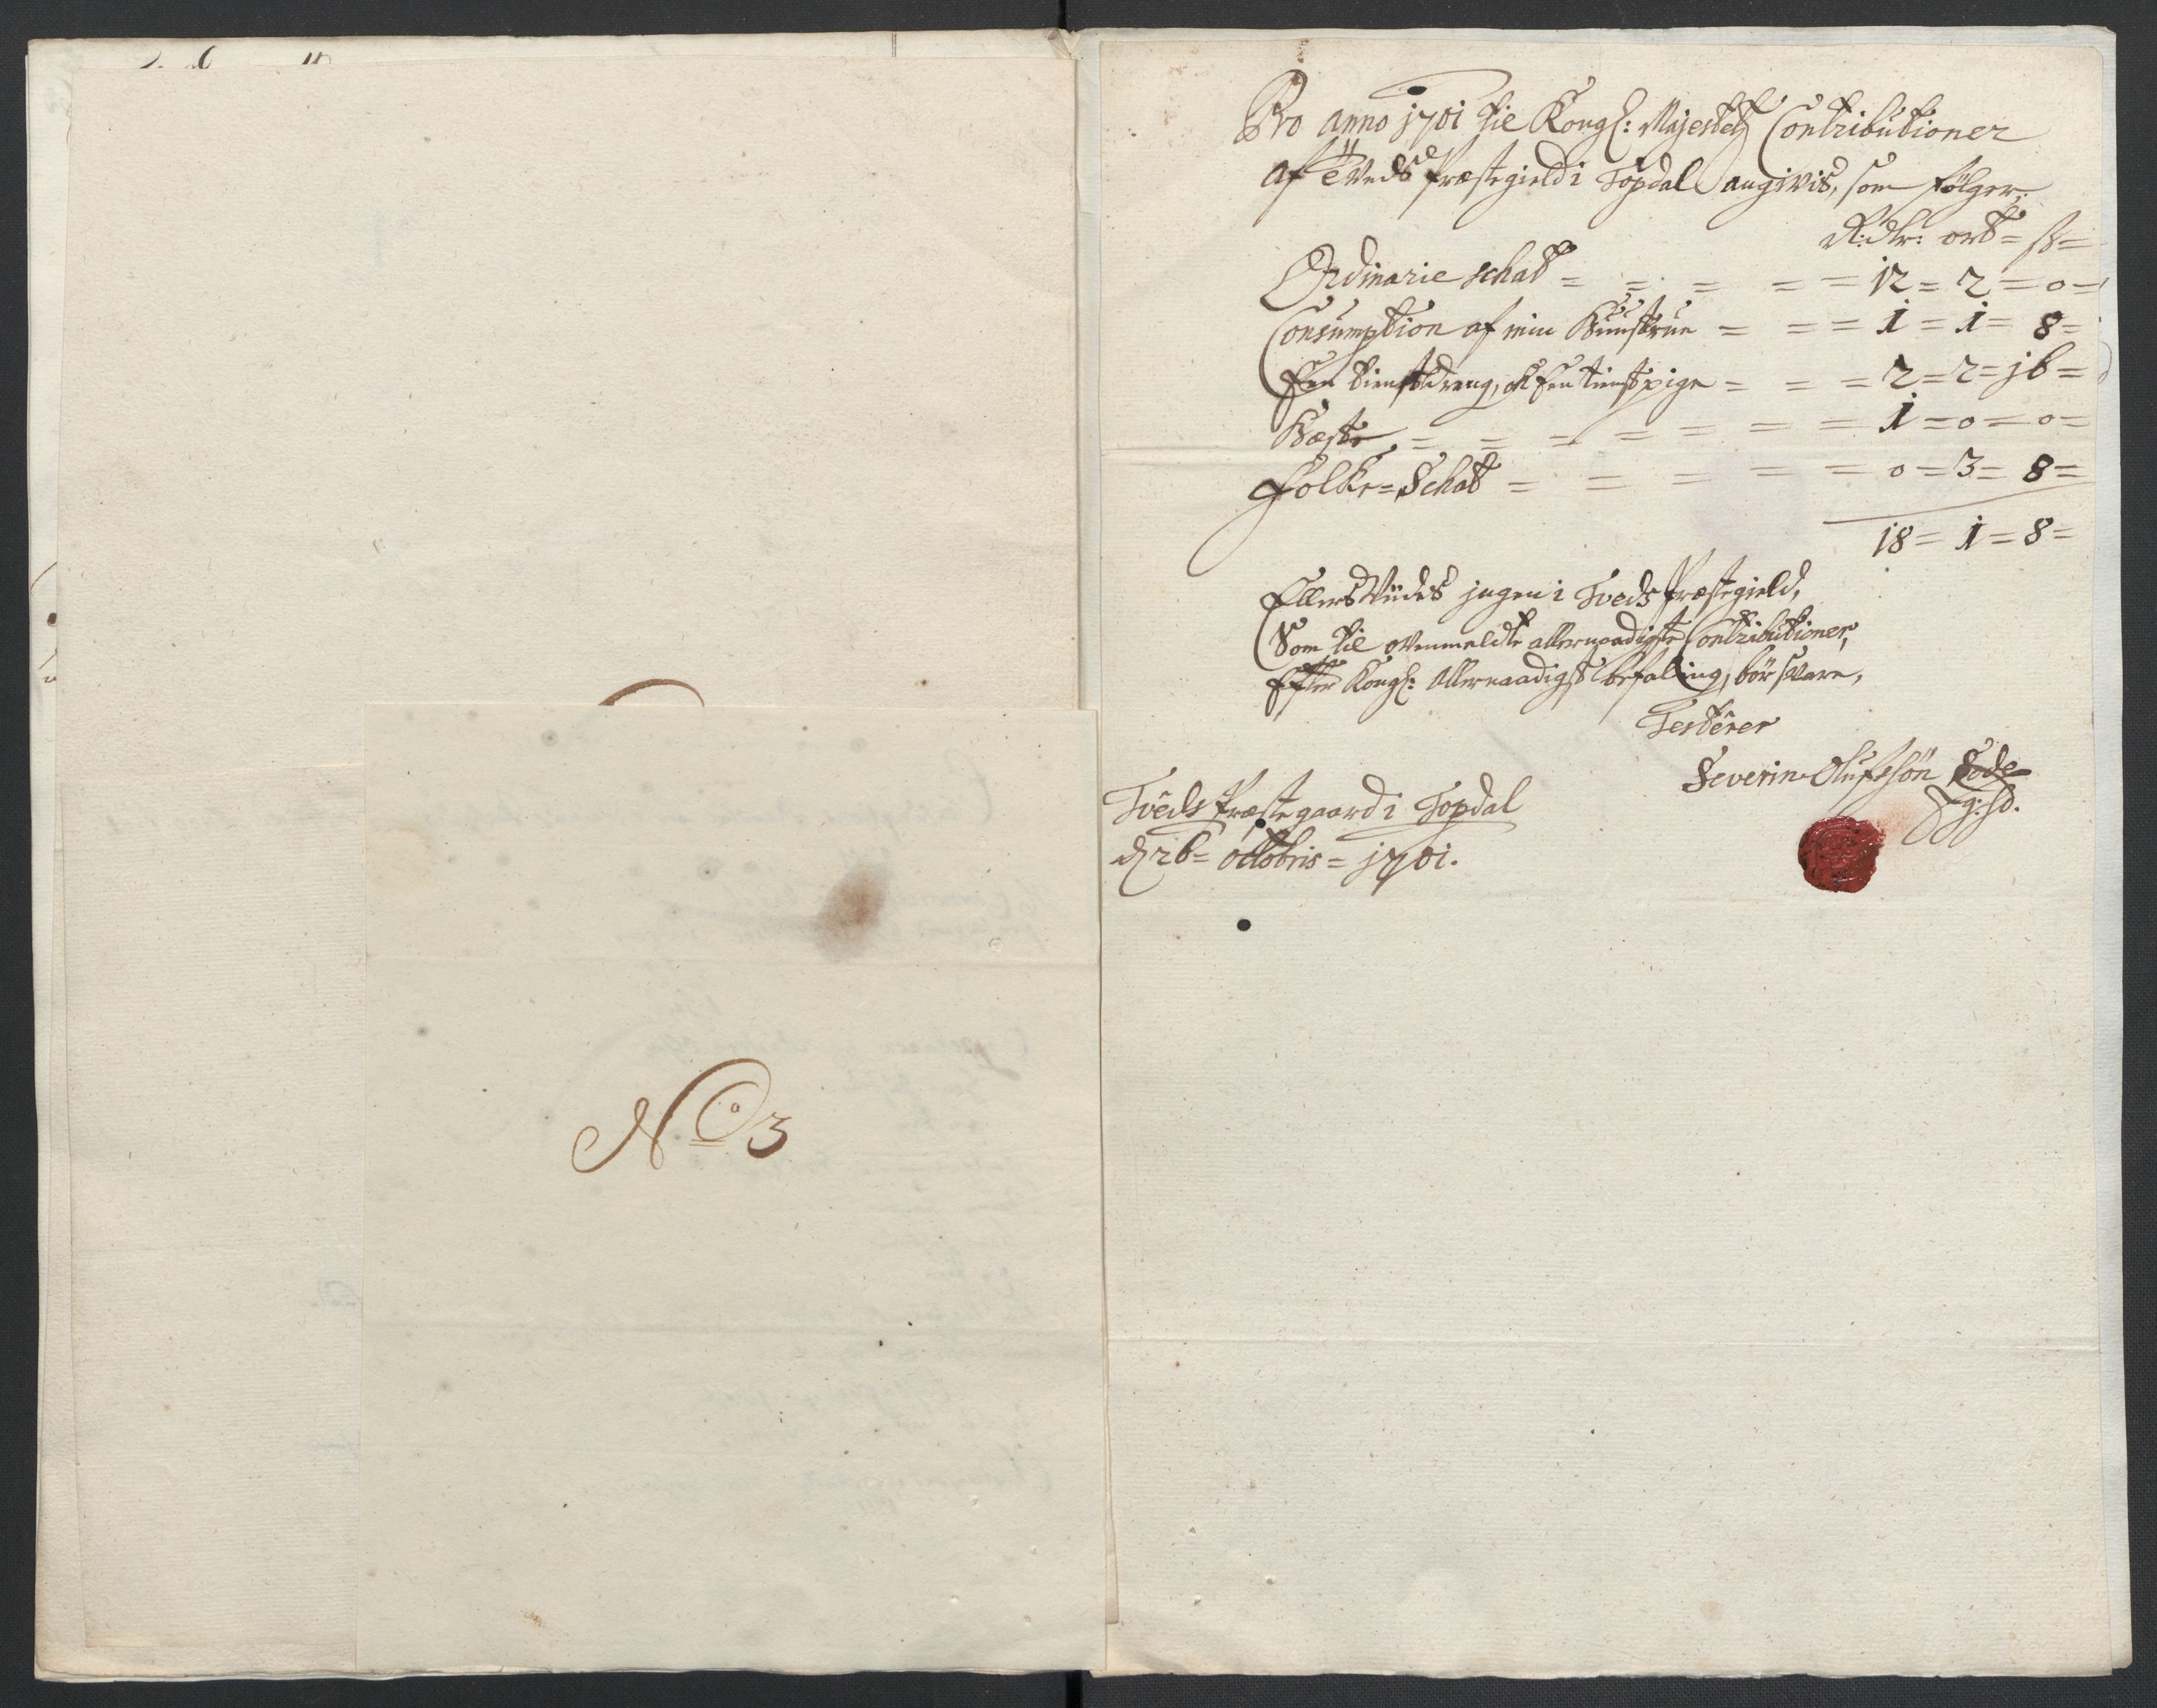 No 3
Pro Anno 1701 til Kongl: Majestets Contributioner
af Tveds Præstegield i Topdal angivis, som følger,
R:dlr: ort = ß =
Ordinarie schat = = = = = 12 = 2 = 0 =
Consumption af min Kunstrue = = = 1 = 1 = 8 =
Een tienistdreng, og Een tienistpige = = = 2 = 2 = 16 =
Hæste = = = = = = = = 1 = 0 = 0 =
Folke = Schat = = = = = 0 = 3 = 8 =
18 = 1 = 8 =
Ellers Viides ingen i Tveds Præstegield,
Som til ovenmeldte allernaadigste Contributioner,
Efter Kongl: Allernaadigst befaling, bør svare,
Testerer
Severin Olufssøn
Tveds Præstegaard i Topdal
d 26 = octobris = 1701.